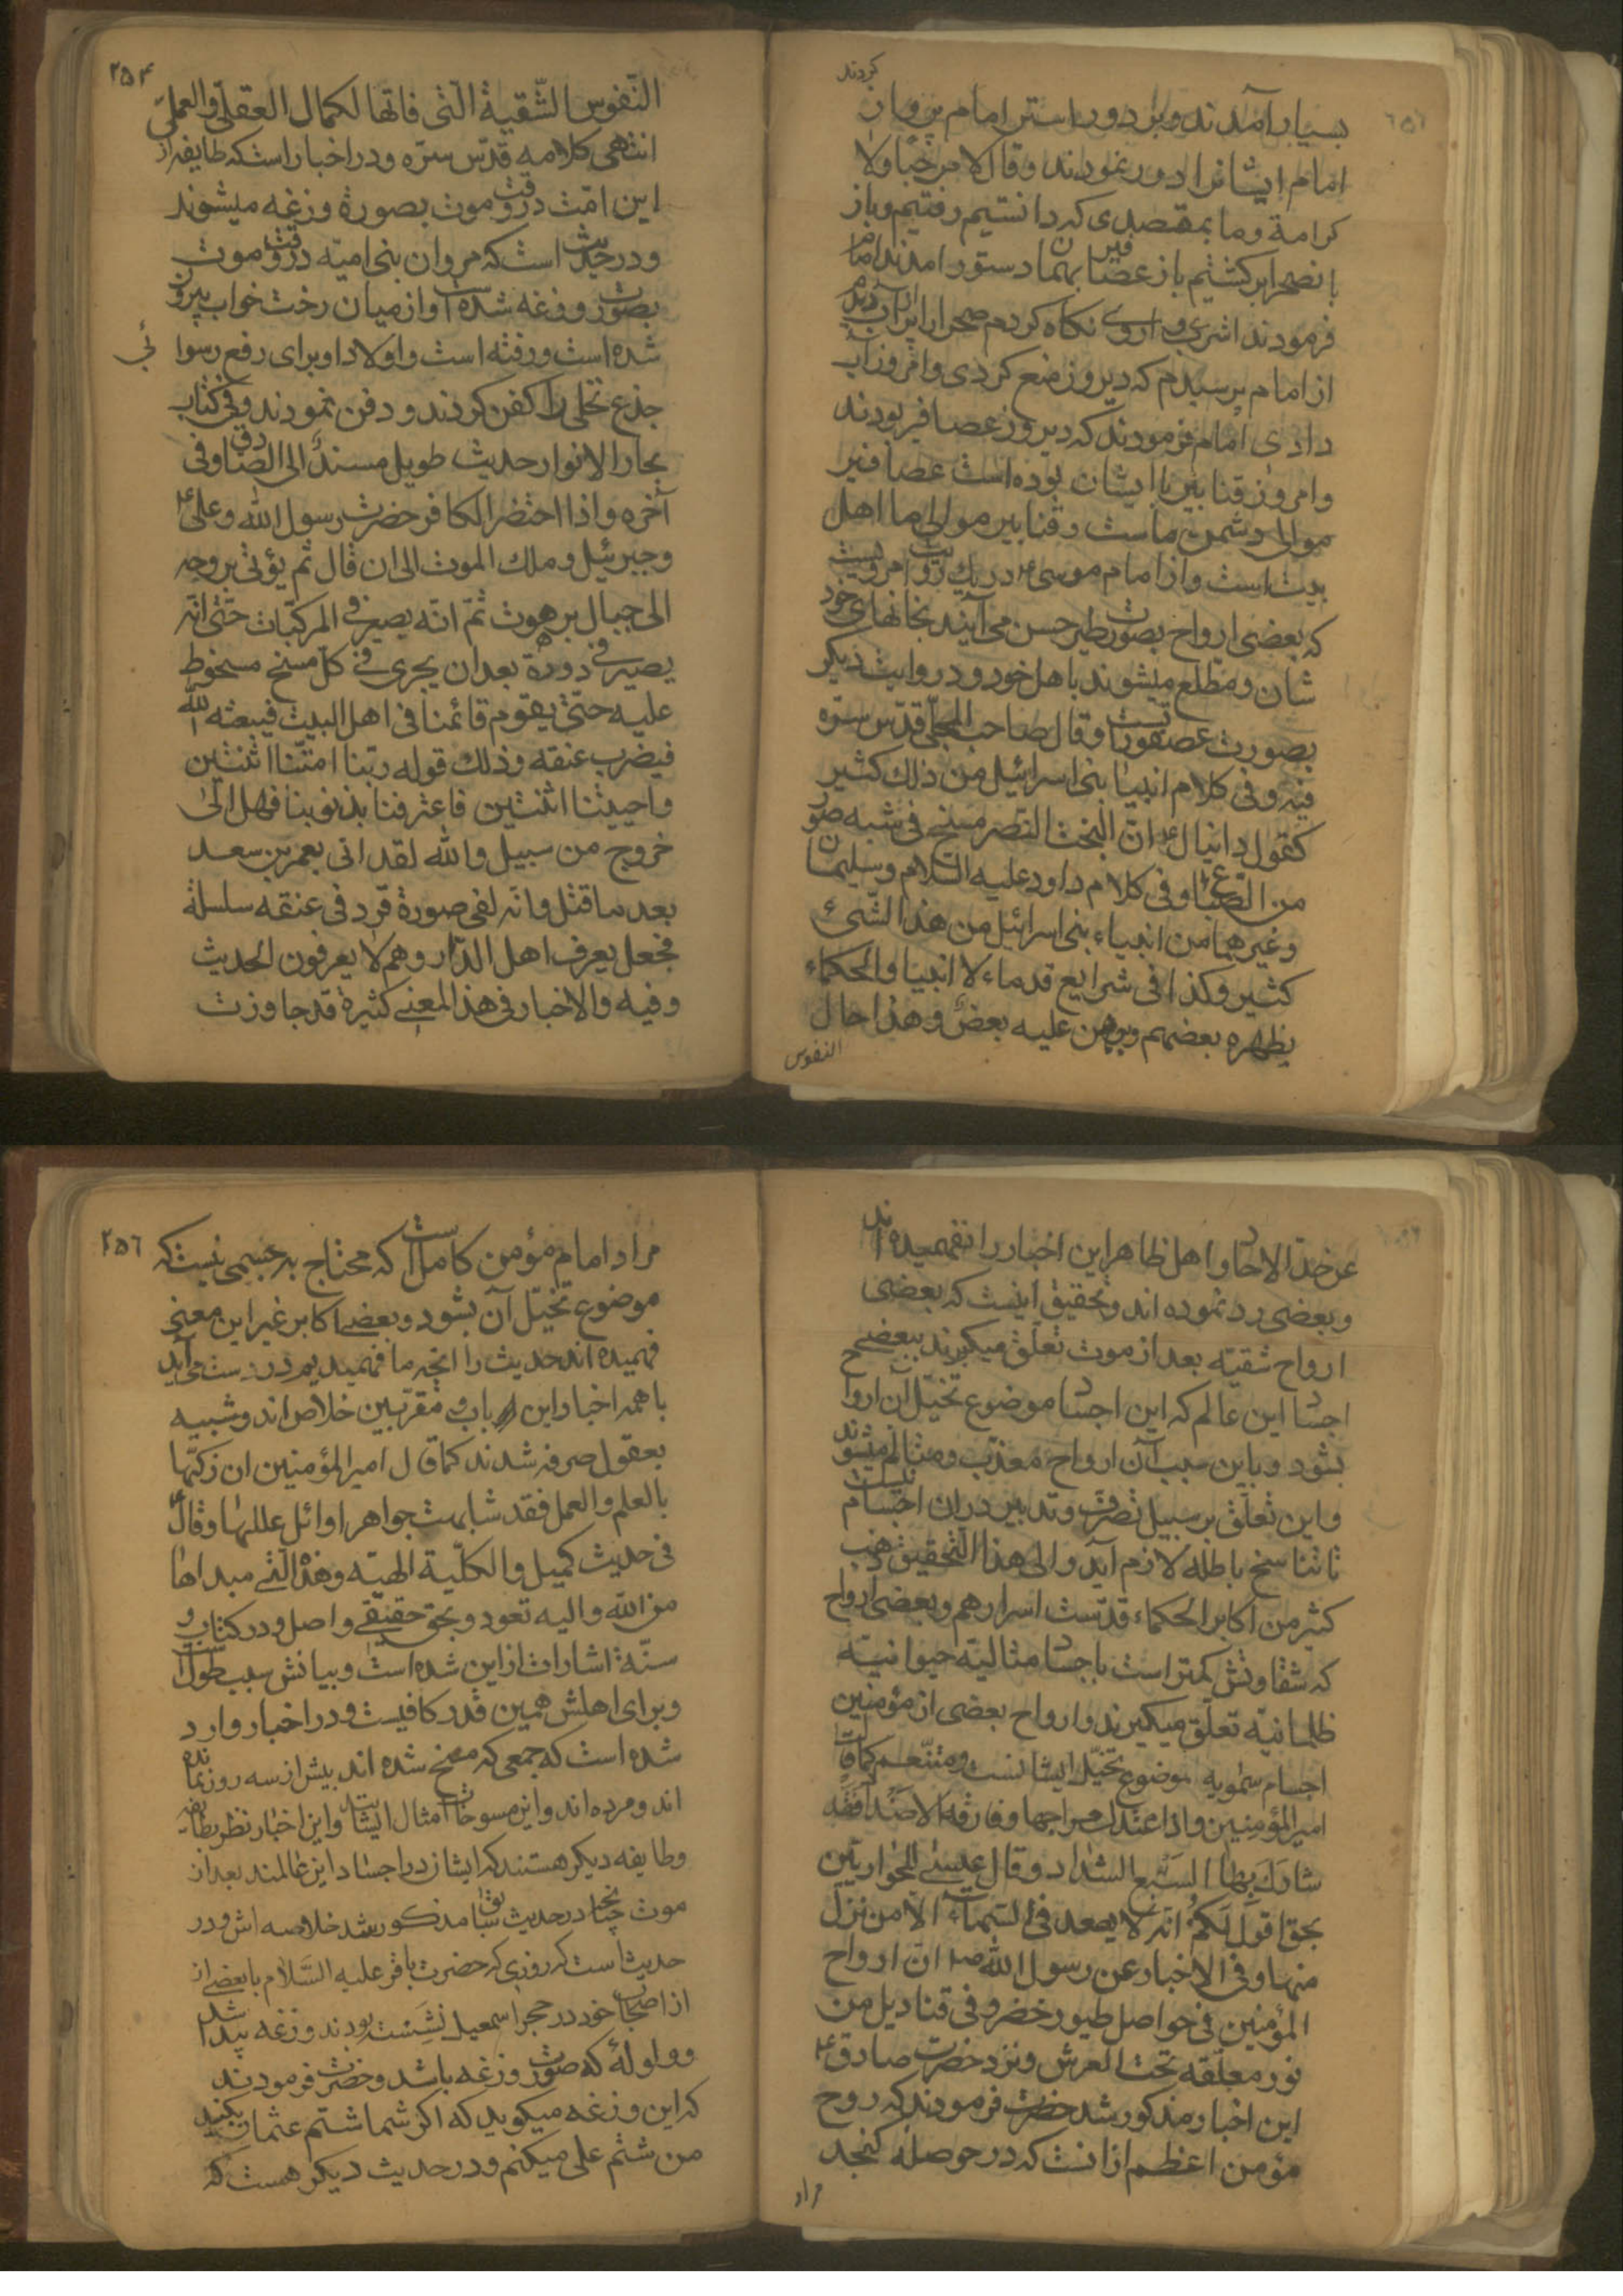 کردند
بسیار آمدند و بر دور استر امام پرواز
امام ایشانرا دور نمودند و قال لا مرحبا و لا
کرامة و ما بمقصدی که دانستیم رفتیم و باز
بانصحرا برکشتیم باز عصافیر بهمان دستور امدند امام
فرمودند اشربی و اروی نکاه کردم صحرا را پر آب دیدم
از امام پرسیدم که دیروز منع کردی و امروز آب
دادی امام فرمودند که دیروز عصافیر بودند
و امروز قنابیر با ایشان بوده است عصافیر
موالی دشمن ماست و قنابیر موالی ما اهل
بیت است و از امام موسی ع در یک روایت مرویست
که بعضی ارواح بصورت طیر حسن می آیند بخانهای خود
شان و مطّلع میشوند باهل خود و در روایت دیکر
بصورت عصفوریست و قال صاحب المجلی قدّس سرّه
فیه و فی کلام انبیا بنی اسرائیل من ذلک کثیر
کقول دانیال ع انّ البخت النصر مسخ فی شبه صور
من السّباع و فی کلام داود علیه السّلام و سلیمان
و غیرهما من انبیاء بنی اسرائیل من هذا الشّیء
کثیر و کذا فی شرایع قدماء الانبیا و الحکماء
یظهره بعضهم و یبرهن علیه بعض و هذا حال
النفوس
۲۵۴
النّفوس الشّقیة الّتی فاتها الکمال العقلی و العملی
انتهی کلامه قدّس سرّه و در اخبار است که طایفه از
این امّت در وقت موت بصورة وزغه میشوند
و در حدیث است که مروان بنی امیّه در وقت موت
بصورت وزغه شده است و از میان رخت خواب بیرون
شده است و رفته است و اولاد او برای رفع رسوائی
جذع نخلی را کفن کردند و دفن نمودند و فی کتاب
بحار الانوار حدیث طویل مسنداً الی الصّادق و فی
آخره و اذا احتضر الکافر حضرت رسول الله و علی ع
و جبرئیل و ملک الموت الی ان قال ثم یؤتی بروحه
الی جبال برهوت ثمّ انّه یصیر فی المرکبّات حتّی انّه
یصیر فی دودة بعد ان یجری فی کلّ مسخ مسخوط
علیه حتّی یقوم قائمنا فی اهل البیت فیبعثه الله
فیضرب عنقه و ذلک قوله ربّنا امتّنا اثنتین
و احییتنا اثنتین فاعترفنا بذنوبنا فهل الی
خروج من سبیل و الله لقد اتی بعمر بن سعد
بعد ما قتل و انّه لفی صورة قرد فی عنقه سلسلة
فجعل یعرف اهل الدّار و هم لا یعرفون الحدیث
و فیه و الاخبار فی هذا المعنی کثیرة قد جاوزت
عن حدّ الاحاد و اهل ظاهر این اخبار را نفهمیده اند
و بعضی رد نموده اند و تحقیق اینست که بعضی
ارواح شقیّه بعد از موت تعلّق میکیرند ببعضی
اجساد این عالم که این اجساد موضوع تخیّل آن ارواح
بشود و باین سبب آن ارواح معذّب و متالّم میشوند
و این تعلّق بر سبیل تصرّف و تدبیر در ان اجسام نیست
تا تناسخ باطله لازم آید و الی هذا التّحقیق ذهب
کثیر من اکابر الحکماء قدّست اسرارهم و بعضی ارواح
که شقاوتش کمتر است باجساد مثالیّه حیوانیّه
ظلمانیّه تعلّق میکیرند و ارواح بعضی از مؤمنین
اجسام سمّویه موضوع تخیّل ایشانست و متنّعم کما قال
امیر المؤمنین و اذا عتدلت مزاجها و فارقه الاضداد فقد
شارک بها السّبع الشداد و قال عیسی للحواریّین
بحقّ اقول لکم انّه لا یصعد فی السّماء الّا من نزل
منها و فی الاخبار عن رسول الله ص انّ ارواح
المؤمنین فی حواصل طیور خضر و فی قنادیل من
نور معلّقه تحت العرش و نزد حضرت صادق ع
این اخبار مذکور شد حضرت فرمودند که روح
مؤمن اعظم از انست که در حوصلهٔ کنجد
مراد
۲۵۶
مراد امام مؤمن کامل است که محتاج به جسمی نیست که
موضوع تخیّل آن بشود و بعضی اکابر غیر این معنی
فهمیده اند حدیث را انچه ما فهمیدیم درست می آید
با همه اخبار این باب و مقرّبین خلاص اند و شبیه
بعقول صرفه شدند کما قال امیر المؤمنین ان زکیّها
بالعلم و العمل فقد شابهت جواهر اوائل عللها و قال ع
فی حدیث کمیل و الکلّیة الهیّه و هذه الّتی مبداها
من الله و الیه تعود و بحق حقیقی واصل و در کتاب و
سنّة اشارات از این شده است و بیانش سبب طول است
و برای اهلش همین قدر کافیست و در اخبار وارد
شده است که جمعی که مسخ شده اند بیش از سه روز نمانده
اند و مرده اند و این مسوخات امثال ایشانند و این اخبار نظر بطایفه
و طایفه دیکر هستند که ایشان در اجساد این عالمند بعد از
موت چنانچه در حدیث سابق مذکور شد خلاصه اش و در
حدیث است که روزی که حضرت باقر علیه السّلام با بعضی از
از اصحاب خود در حجر اسمعیل نشسته بودند وزغه پیدا شد
و ولوله که صوت وزغه باشد و حضرت فرمودند
که این وزغه میکوید که اکر شما شتم عثمان بکنید
من شتم علی میکنم و در حدیث دیکر هست که